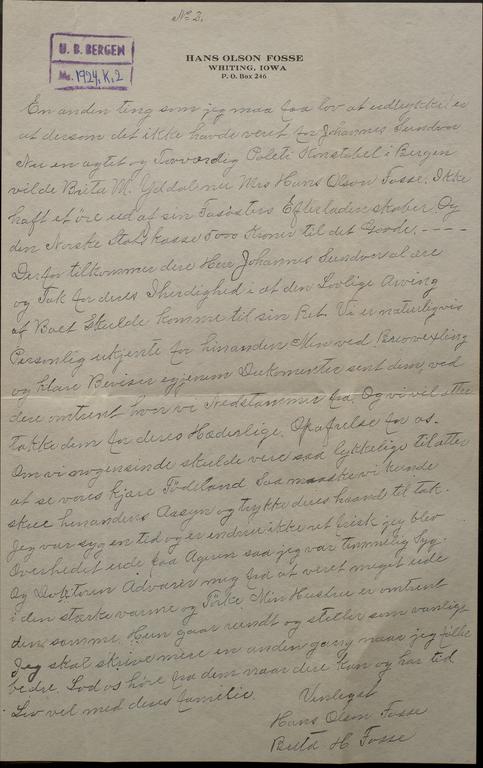 No 2.
U. B. BERGEN
Ms. 1924, K, 2
HANS OLSON FOSSE
WHITING, IOWA
P. O. Box 246
En anden ting som jeg maa faa lov at udtrykke er
at dersom det ikke havde veret for Johannes Sundvor
Nu en agtet og Trovverdig Politi Konstabel i Bergen
vilde Brita M. Yddalener Mrs Hans Olson Fosse. Ikke
haft et øre ud af sin Fasösters Efterladenskaber. Og
den Norske Stats kasse 5000 Kroner til det Goode. - - - -
Derfor tilkommer dere Herr Johannes Sundvor al ære
og Tak for deres Iherdighed i at den Lovlige Arving
af Boet Skulde komme til sin Ret. Vi er naturligvis
Personlig ukjente for hinanden Men ved Brevvexling
og klare Beviser egjenem Dokumenter sent dem, ved
dere omtrent hvor vi Nedstammer fra. Og vi vil atter
takke dem for deres Hæderlige. Opofrelse for os.
Om vi nogensinde skulde vere saa lykkelige til atter
at se vores kjære Födeland Saa maaske vi kunde
skue hinandens Aasyn og trykke deres haand til tak.
Jeg var syg en tid og er endnu ikke ret frisk jeg blev
Overhedet ude paa Ageren saa jeg var temmelig Syg.
Og Doktoren Advarer mig fra at veret meget ude
i den stærke varme og Tørke Min Hustru er omtrent
den samme. Hun gaar rundt og steller som vanligt
Jeg skal skrive mere en anden gang naar jeg føller
bedre. Lad os høre fra dem naar dere kan og har tid
Lev vel med deres familie.
Venligst
Hans Olson Fosse
Brita H Fosse